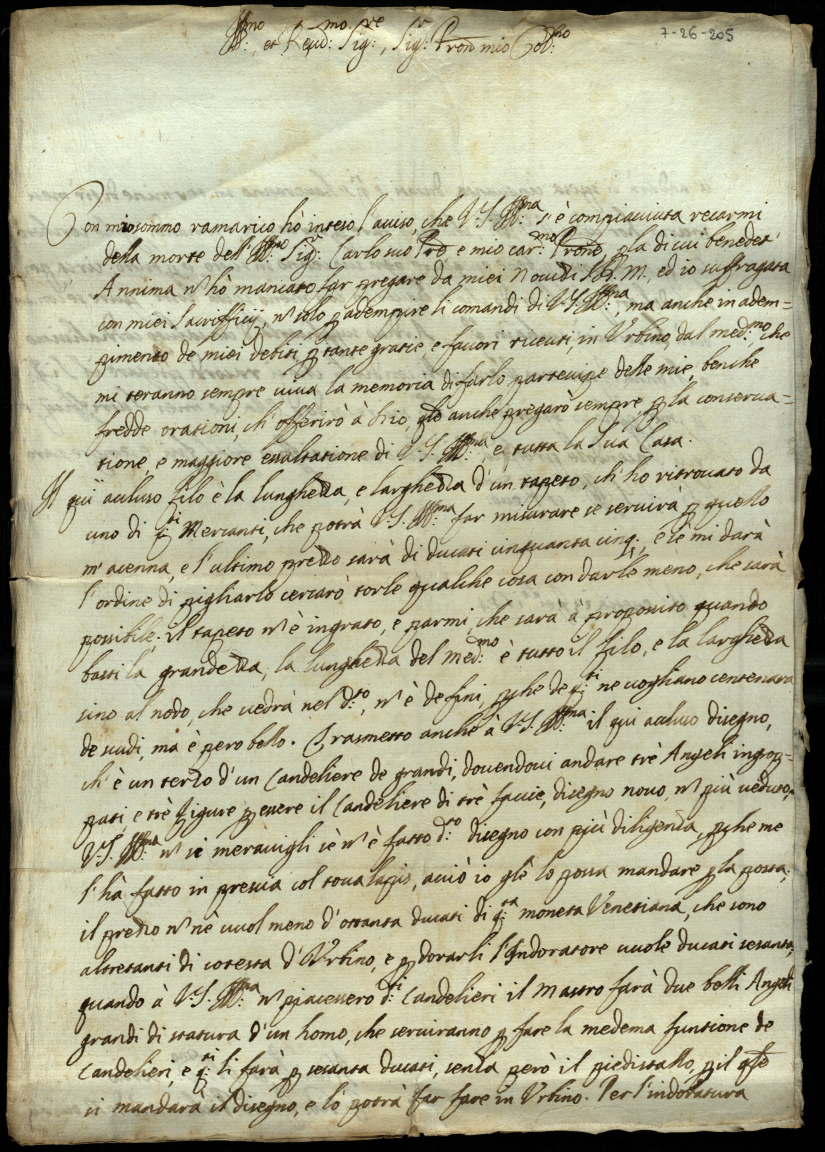 Ill:mo, et Reud:mo Sig:re, Sig:r Pron mio Col:mo
7-26-205
Con mio sommo ramarico hò inteso l'auiso, che V.S. Ill:ma s'è compiaciuta recarmi
della morte dell'Ill:mo Sig:r Carlo suo Pre e mio car:mo Prone, p la di cui benedet
Annima nō hò mancato far pregare da miei Nouizi, ed io suffragata
con miei Sacrifficij, nō solo p adempire li comandi di V.S. Ill:ma, ma anche in adem=
pimento de miei debiti p tante gratie, e fauori riceuti, in Vrbino, dal med:mo, che
mi teranno sempre viva la memoria di farlo partecipe delle mie, benche
fredde orationi, ch'offerirò à Dio, qle anche pregarò sempre, p la conserua=
tione, e maggiore essaltatione di V.S. Ill:ma e tutta la Sua Casa.
Il qui accluso filo è la lunghezza, e larghezza d'un tapeto, ch'ho ritrouato da
uno di q:ti Mercanti, che potrà V.S. Ill:ma far misurare se seruirà p quello
m'acenna, e l'ultimo prezzo sarà di ducati cinquanta cinq: e se mi darà
l'ordine di pigliarlo cercarò torle qualche cosa con darle meno, che sarà
possibile; il tapeto nō è ingrato, e parmi che sarà à proposito quando
basti la grandezza, la lunghezza del med:mo è tutto il filo, e la larghezza
sino al nodo, che uedrà nel d:to, nō è de fini, pche de q:ti ne uogliano centenara
de scudi, ma è però bello. Trasmetto anche à V.S. Ill:ma il qui accluso disegno,
ch'è un terzo d'un Candeliere de grandi, douendoui andare trè Angeli ingrop=
pati, e trè figure p essere il Candeliere di trè facie, disegno nouo, nō più ueduto,
V.S. Ill:ma nō si merauigli sè nō è fatto d:to disegno con più diligenza, pche me
l'hà fatto in pressia col toualapis, acciò io gle lo possa mandare p la posta;
il prezzo nō nè uuol meno d'ottanta ducati di q:ta moneta Venetiana, che sono
altretanti di cotesta d'Vrbino, e p dorarli l'Indoratore uuole ducati sesanta;
quando à V.S. Ill:ma nō piacessero d:ti Candelieri il Mastro farà due belli Angeli
grandi di statura d'un homo, che seruiranno p fare la medema funtione de
Candelieri, e q:ti li farà p sesanta ducati, senza però il piedistallo, p il qle
si mandarà il disegno, e lo potrà far fare in Vrbino. Per l'indoratura